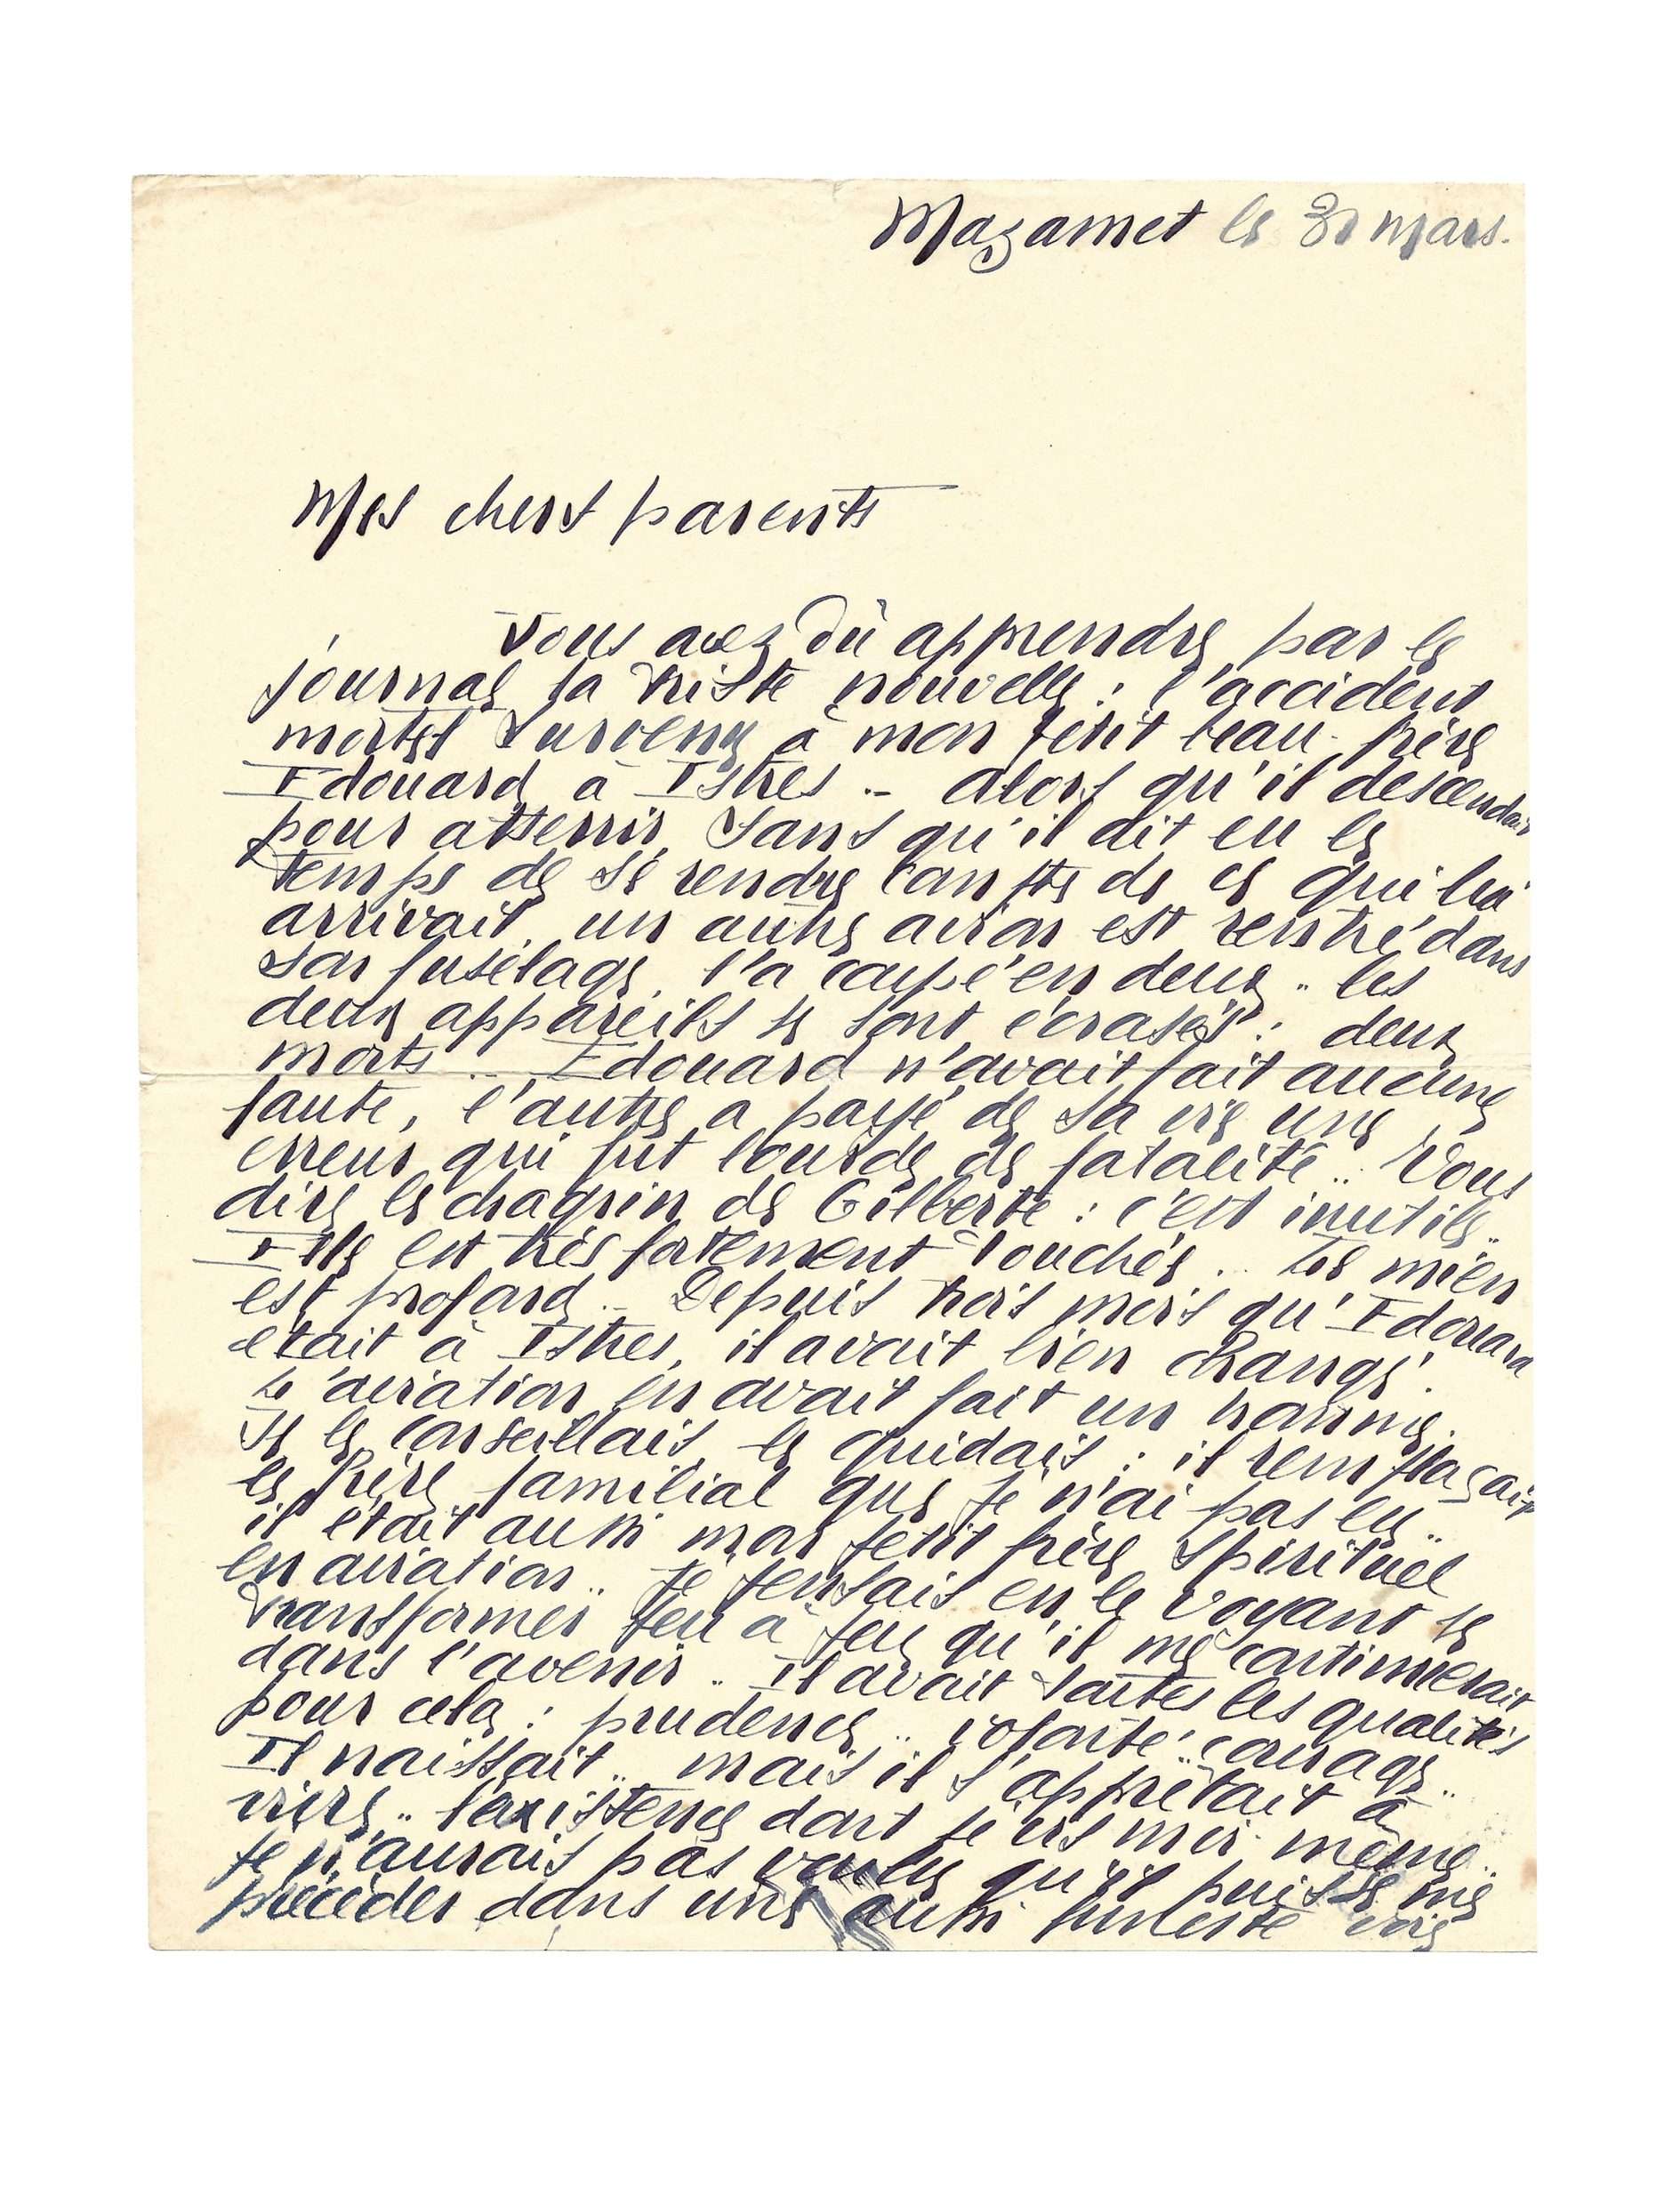 Mazamet le 30 mars.
Mes chers parents
Vous avez dû apprendre par le
journal la triste nouvelle : l'accident
mortel survenu à mon petit beau-frère
Edouard à Istres .. alors qu'il descendait
pour atterrir, sans qu'il ait eu le
temps de se rendre compte de ce qui lui
arrivait, un autre avion est rentré dans
son fuselage, l'a coupé en deux .. les
deux appareils se sont écrasés : deux
morts .. Edouard n'avait fait aucune
faute, l'autre a payé de sa vie une
erreur qui fut lourde de fatalité .. Vous
dire le chagrin de Gilberte : c'est inutile ..
Elle est très fortement touchée .. Le mien
est profond .. Depuis trois mois qu'Edouard
était à Istres, il avait bien changé.
L'aviation en avait fait un homme.
Je le conseillais, le guidais : il remplaçait
le frère familial que je n'ai pas eu ..
il était aussi mon petit frère spirituel
en aviation .. Je pensais en le voyant se
transformer peu à peu qu'il me continuerait
dans l'avenir .. Il avait toutes les qualités
pour cela : prudence .. volonté .. courage ..
Il naissait .. mais il s'apprêtait à
vivre .. l'existence dont je vis moi-même ..
Je n'aurais pas voulu qu'il puisse me
précéder dans une aussi funeste voie